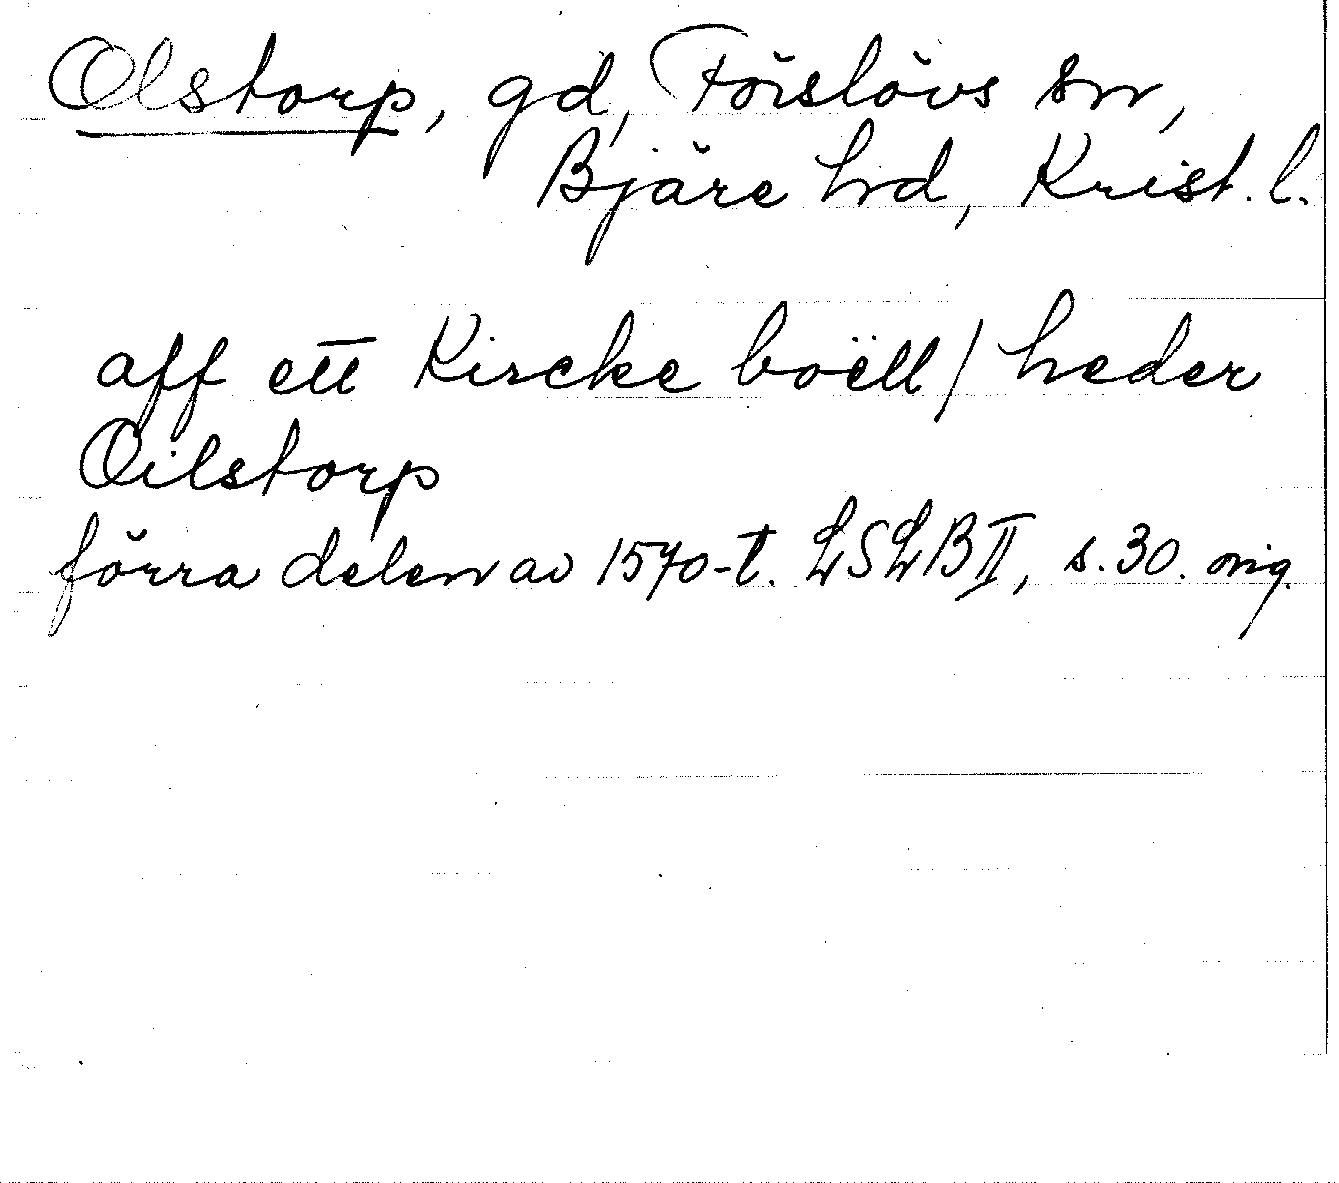 Olstorp, gd, Förslövs sn,
Bjäre hd, Krist. l.
aff ett Kircke boëll/ heder
Oilstorp
förra delen av 1570-t. LSLB II, s. 30. orig.